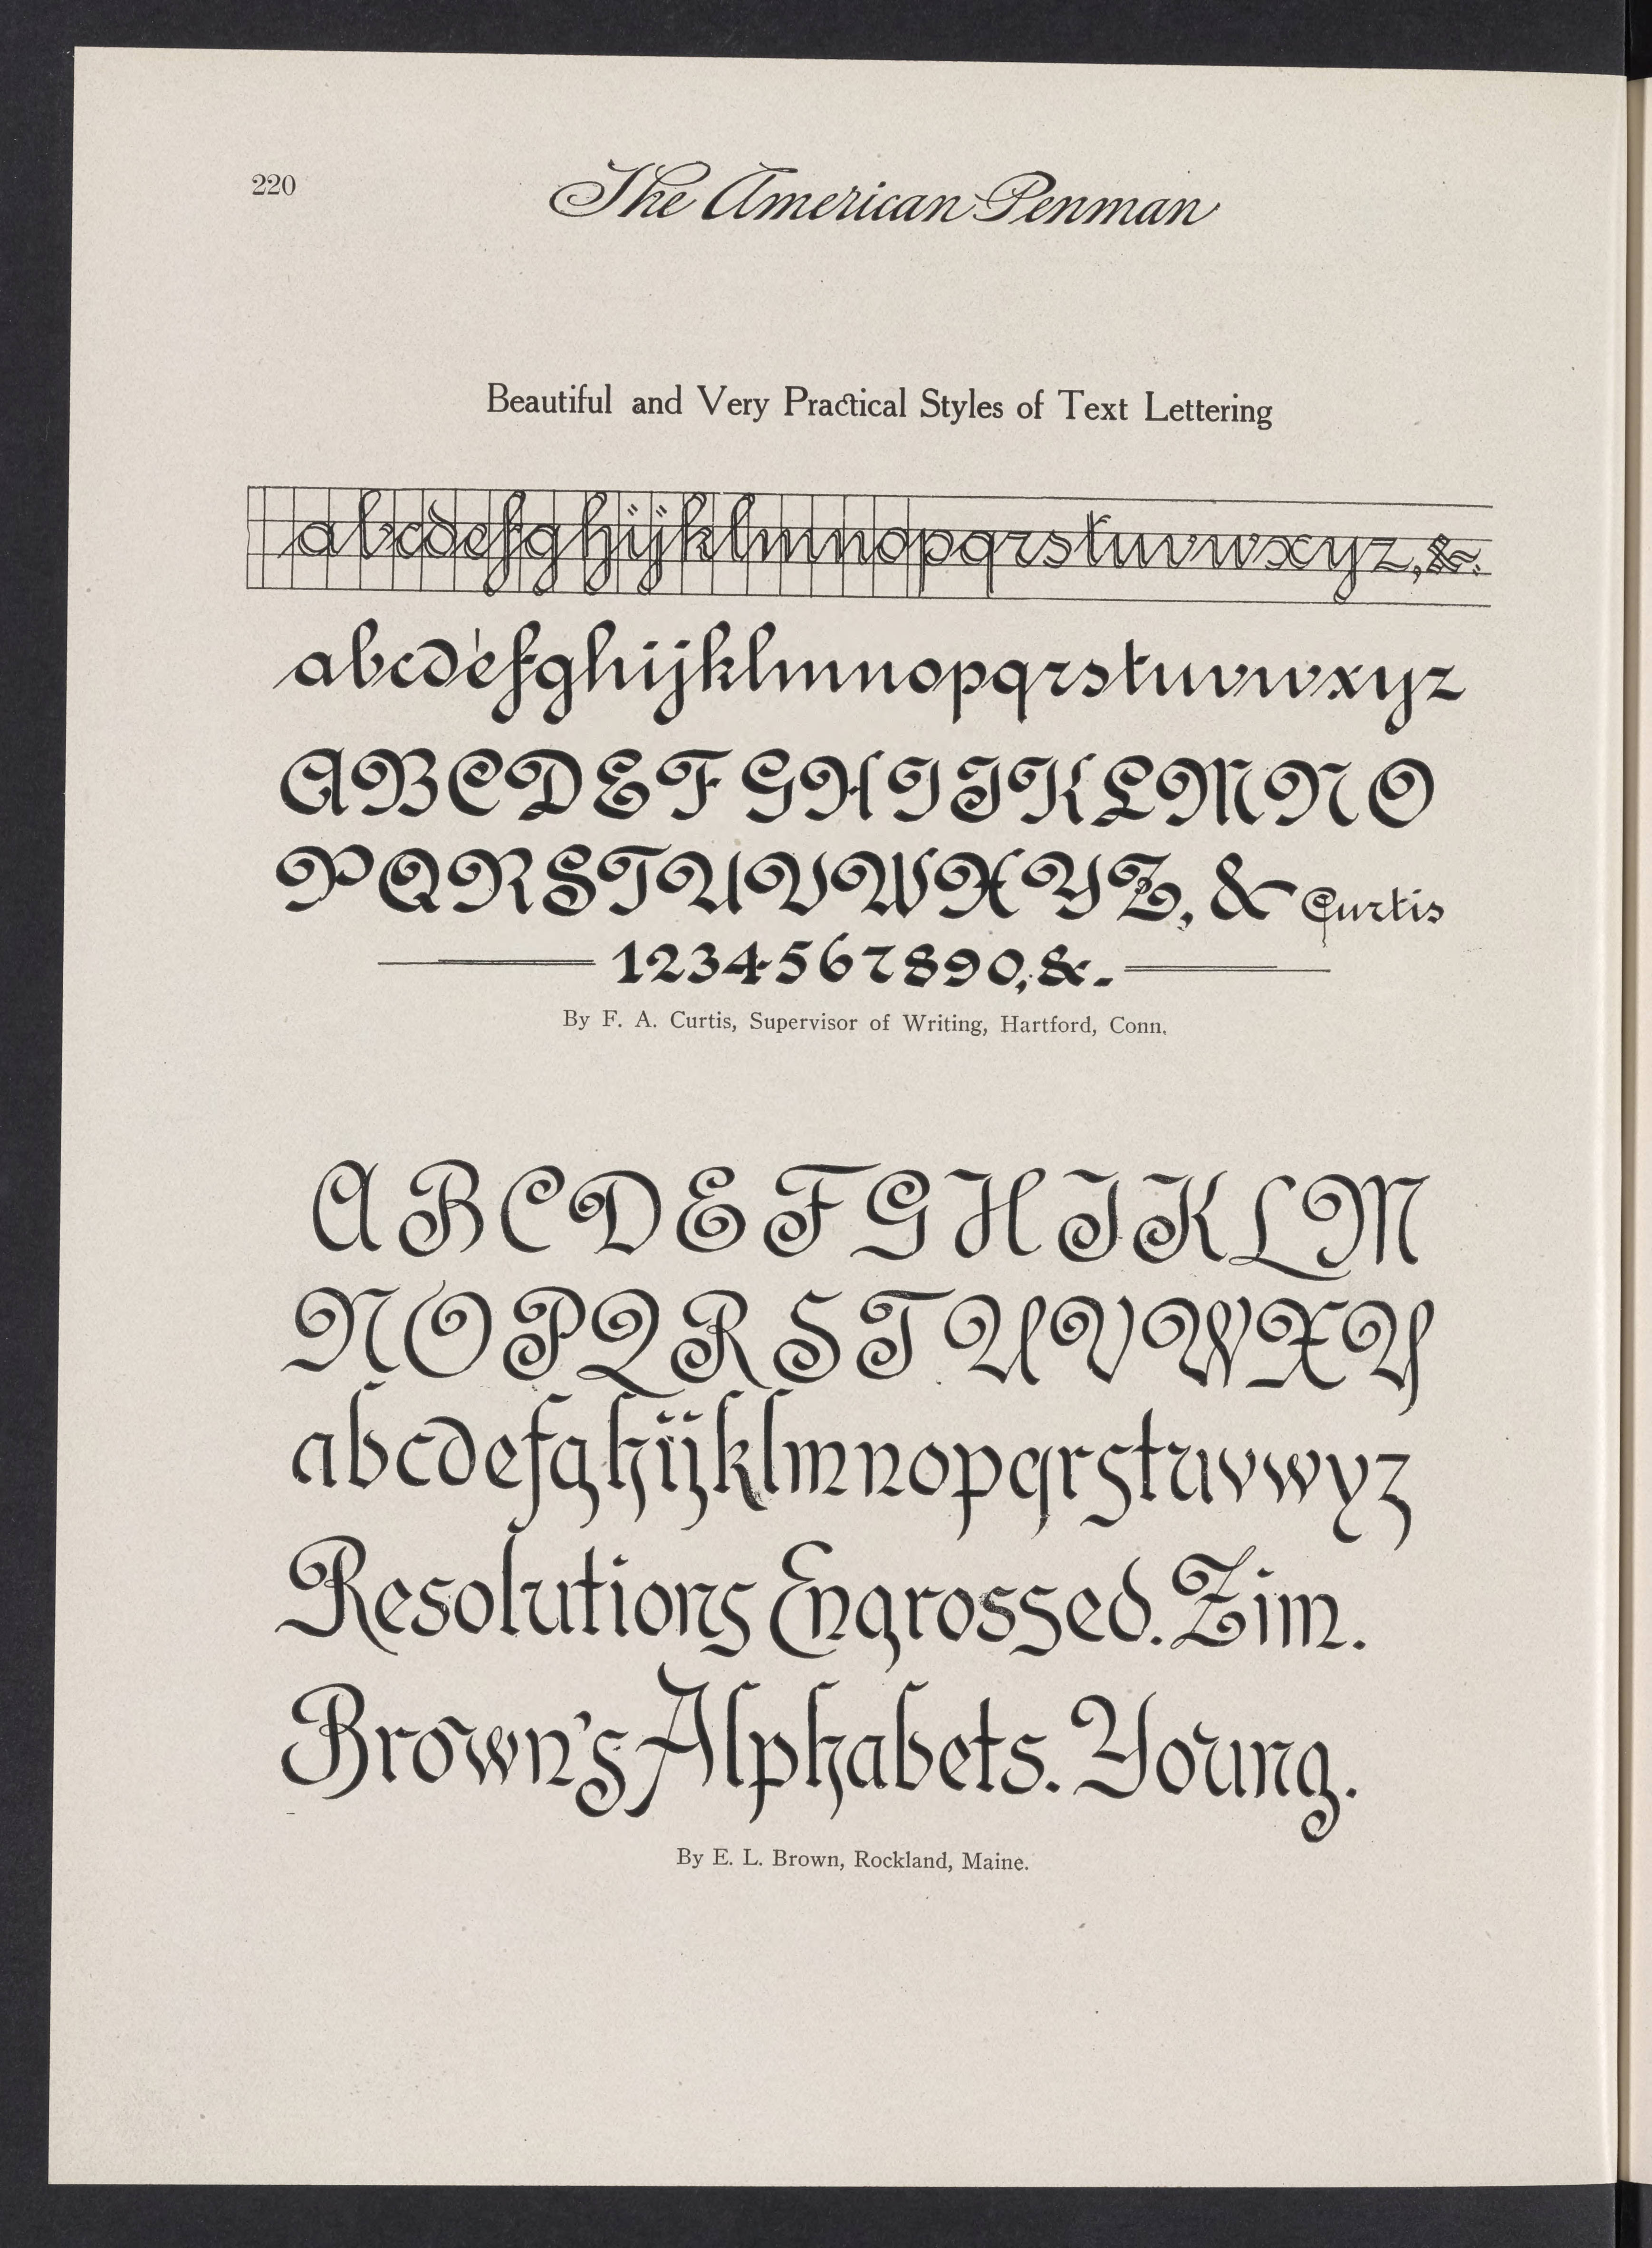 220
The American Penman
Beautiful and Very Practical Styles of Text Lettering
abcdefghijklmnopqrstuvwxyz, &.
abcdefghijklmnopqrstuvwxyz
ABCDEFGHIJKLMNO
PQRSTUVWXYZ, & Curtis
1234567890, &.
By F. A. Curtis, Supervisor of Writing, Hartford, Conn.
ABCDEFGHIKLM
NOPQRSTUVWXY
abcdefghijklmnopqrstuvwyz
Resolutions Engrossed. Zim.
Brown's Alphabets. Young.
By E. L. Brown, Rockland, Maine.